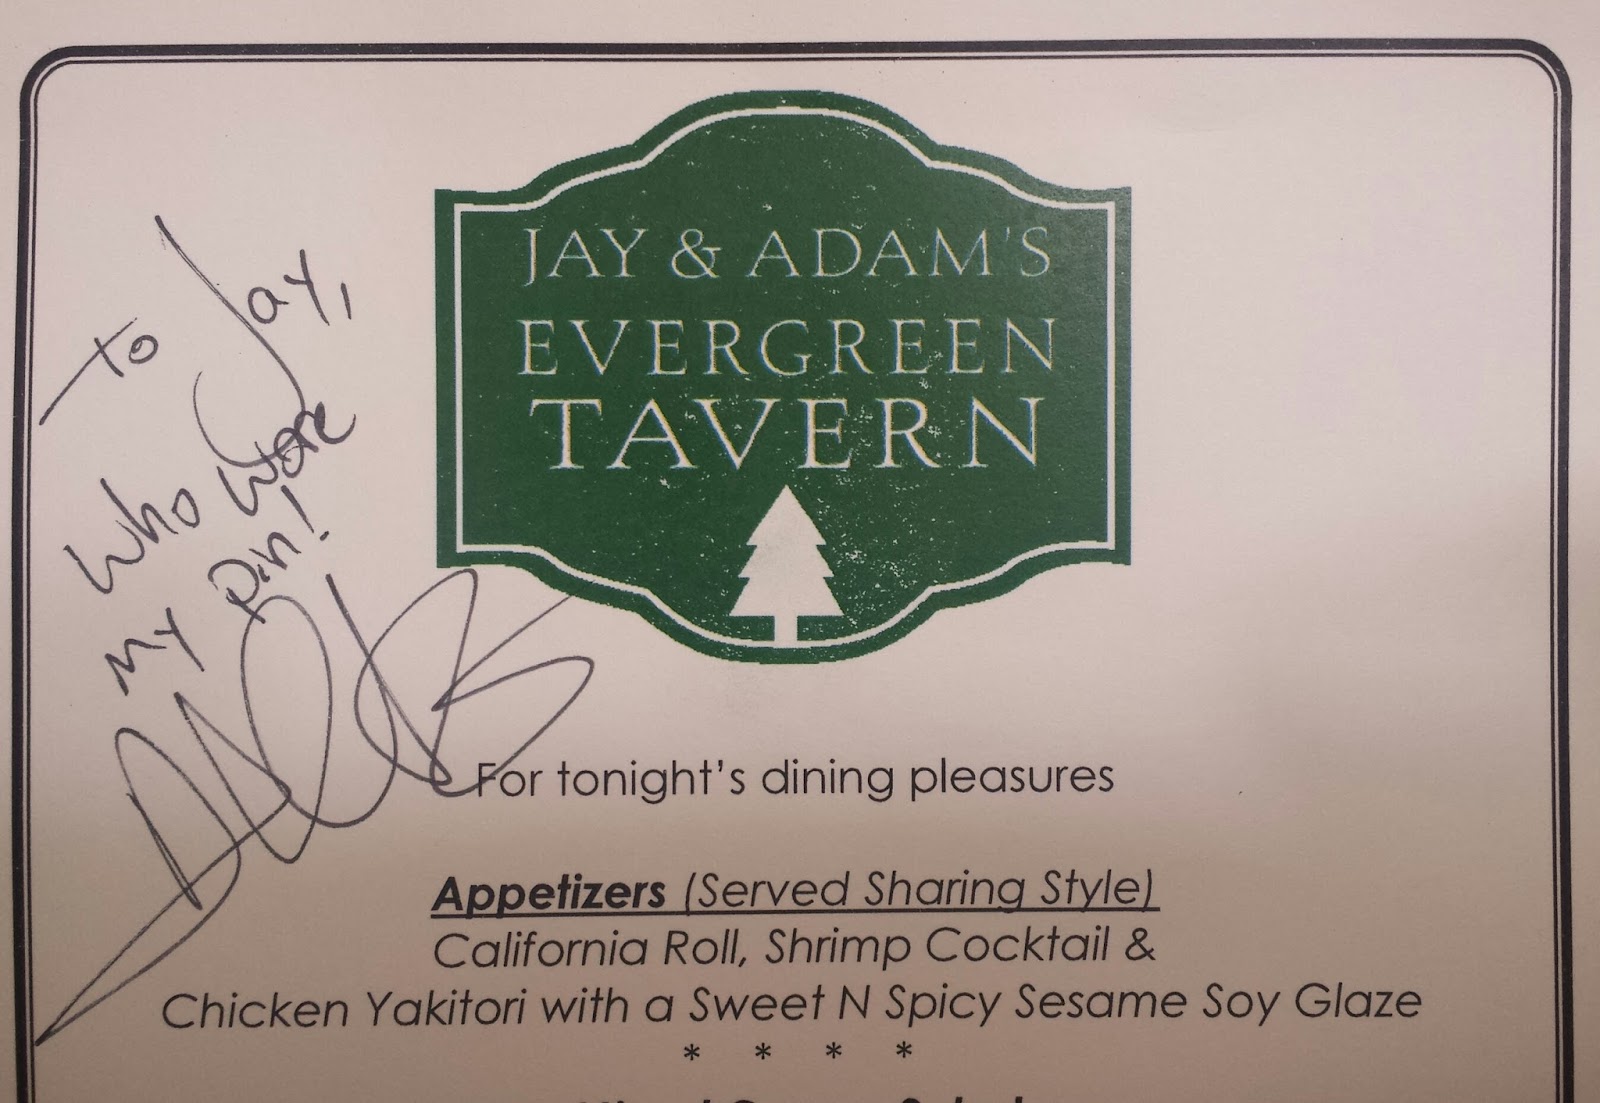 To Jay,
Who wore
my pin!
JAY & ADAM'S
EVERGREEN
TAVERN
For tonight's dining pleasures
Appetizers (Served Sharing Style)
California Roll, Shrimp Cocktail &
Chicken Yakitori with a Sweet N Spicy Sesame Soy Glaze
* * * *